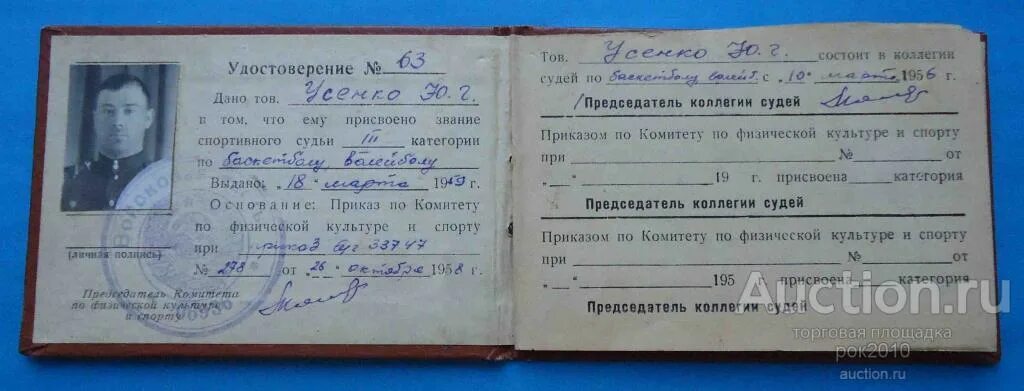 Удостоверение № 63
Дано тов. Усенко Ю. Г.
в том, что ему присвоено звание
спортивного судьи III категории
по баскетболу, волейболу
Выдано: "18" марта 1959 г.
Основание: Приказ по Комитету
по физической культуре и спорту
при приказ в/ч 33747
№ 278 от "26" октября 1958 г.
(личная подпись)
Председатель Комитета
по физической культуре
и спорту
Тов. Усенко Ю. Г. состоит в коллегии
судей по баскетболу волейб. с "10" марта 1956 г.
Председатель коллегии судей
Приказом по Комитету по физической культуре и спорту
при № от
" " 19 г. присвоена категория
Председатель коллегии судей
Приказом по Комитету по физической культуре и спорту
при № от
" " 195 г. присвоена категория
Председатель коллегии судей
Auction.ru
торговая площадка
рок2010
auction.ru